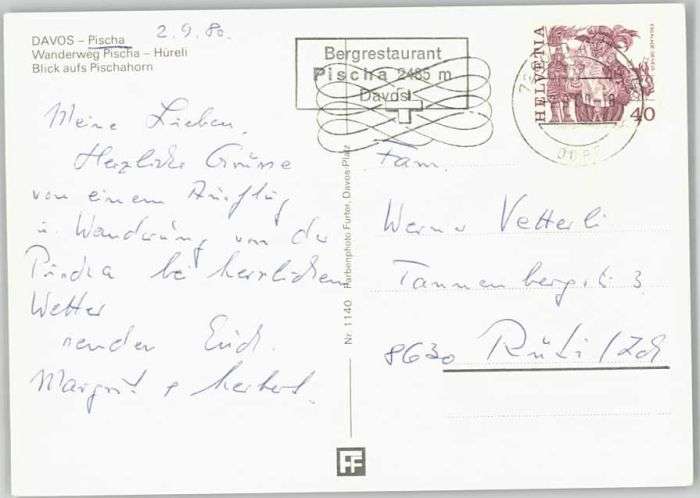 DAVOS – Pischa 2.9.80.
Wanderweg Pischa – Hüreli
Blick aufs Pischahorn
Bergrestaurant
Pischa 2485 m
Davos
HELVETIA
40
Meine Lieben,
Herzliche Grüsse
von einem Ausflug
u. Wanderung von der
Pischa bei herrlichem
Wetter
senden Euch
Margrit + Herbert.
Nr. 1140 Farbenphoto Furter, Davos-Platz
Fam.
Werner Vetterli
Tannenbergstr. 3
8630 Rüti/Zch
FF